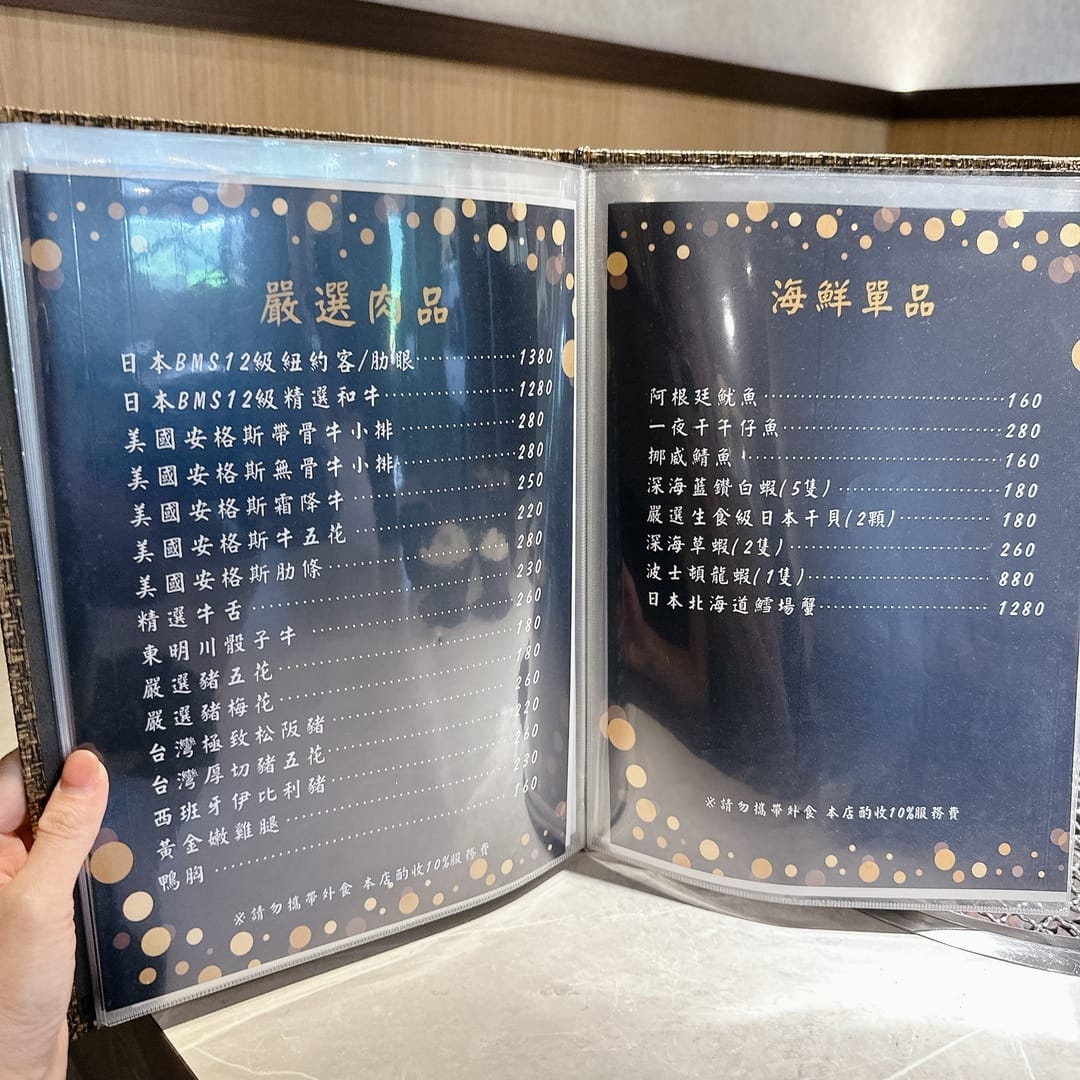 嚴選肉品
日本BMS12級紐約客/肋眼 1380
日本BMS12級精選和牛 1280
美國安格斯帶骨牛小排 280
美國安格斯無骨牛小排 280
美國安格斯霜降牛 250
美國安格斯牛五花 220
美國安格斯肋條 280
精選牛舌 230
東明川骰子牛 260
嚴選豬五花 180
嚴選豬梅花 180
台灣極致松阪豬 260
台灣厚切豬五花 220
西班牙伊比利豬 260
黃金嫩雞腿 230
鴨胸 160
※請勿攜帶外食 本店酌收10%服務費
海鮮單品
阿根廷魷魚 160
一夜干午仔魚 280
挪威鯖魚 160
深海藍鑽白蝦(5隻) 180
嚴選生食級日本干貝(2顆) 180
深海草蝦(2隻) 260
波士頓龍蝦(1隻) 880
日本北海道鱈場蟹 1280
※請勿攜帶外食 本店酌收10%服務費